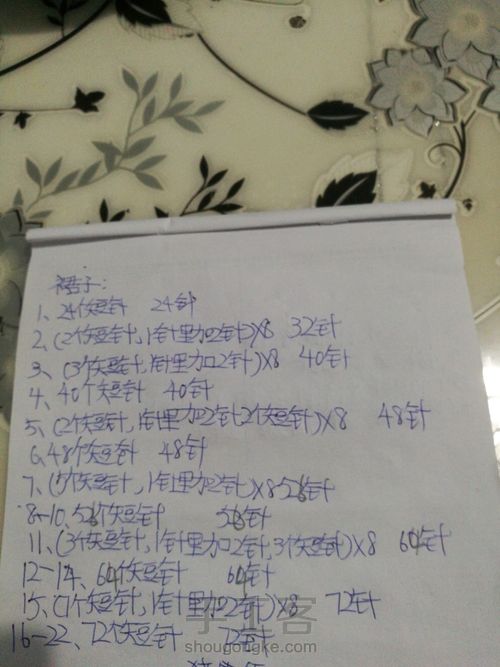 裙子:
1、24个短针 24针
2、(2个短针,1针里加2针)X8 32针
3、(3个短针,1针里加2针)X8 40针
4、40个短针 40针
5、(2个短针,1针里加2针,2个短针)X8 48针
6、48个短针 48针
7、(5个短针,1针里加2针)X8 56针
8-10、56个短针 56针
11、(3个短针,1针里加2针,3个短针)X8 64针
12-14、64个短针 64针
15、(7个短针,1针里加2针)X8 72针
16-22、72个短针 72针
手工客
shougongke.com